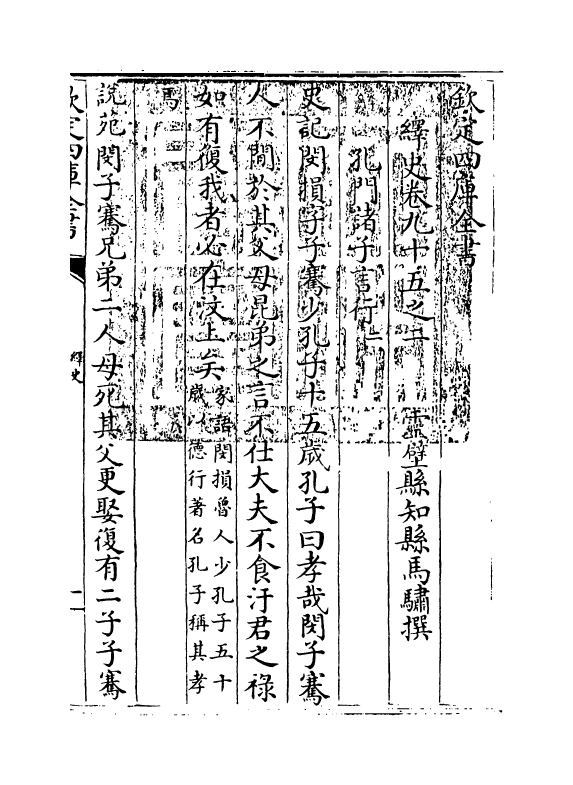 欽定四庫全書
繹史卷九十五之二　靈璧縣知縣馬驌撰
孔門諸子言行二
史記閔損字子騫少孔子十五歲孔子曰孝哉閔子騫
人不間於其父母昆弟之言不仕大夫不食汙君之祿
如有復我者必在汶上矣家語閔損魯人少孔子五十
歲以德行著名孔子稱其孝
焉
說苑閔子騫兄弟二人母死其父更娶復有二子子騫
欽定四庫全書
繹史
一